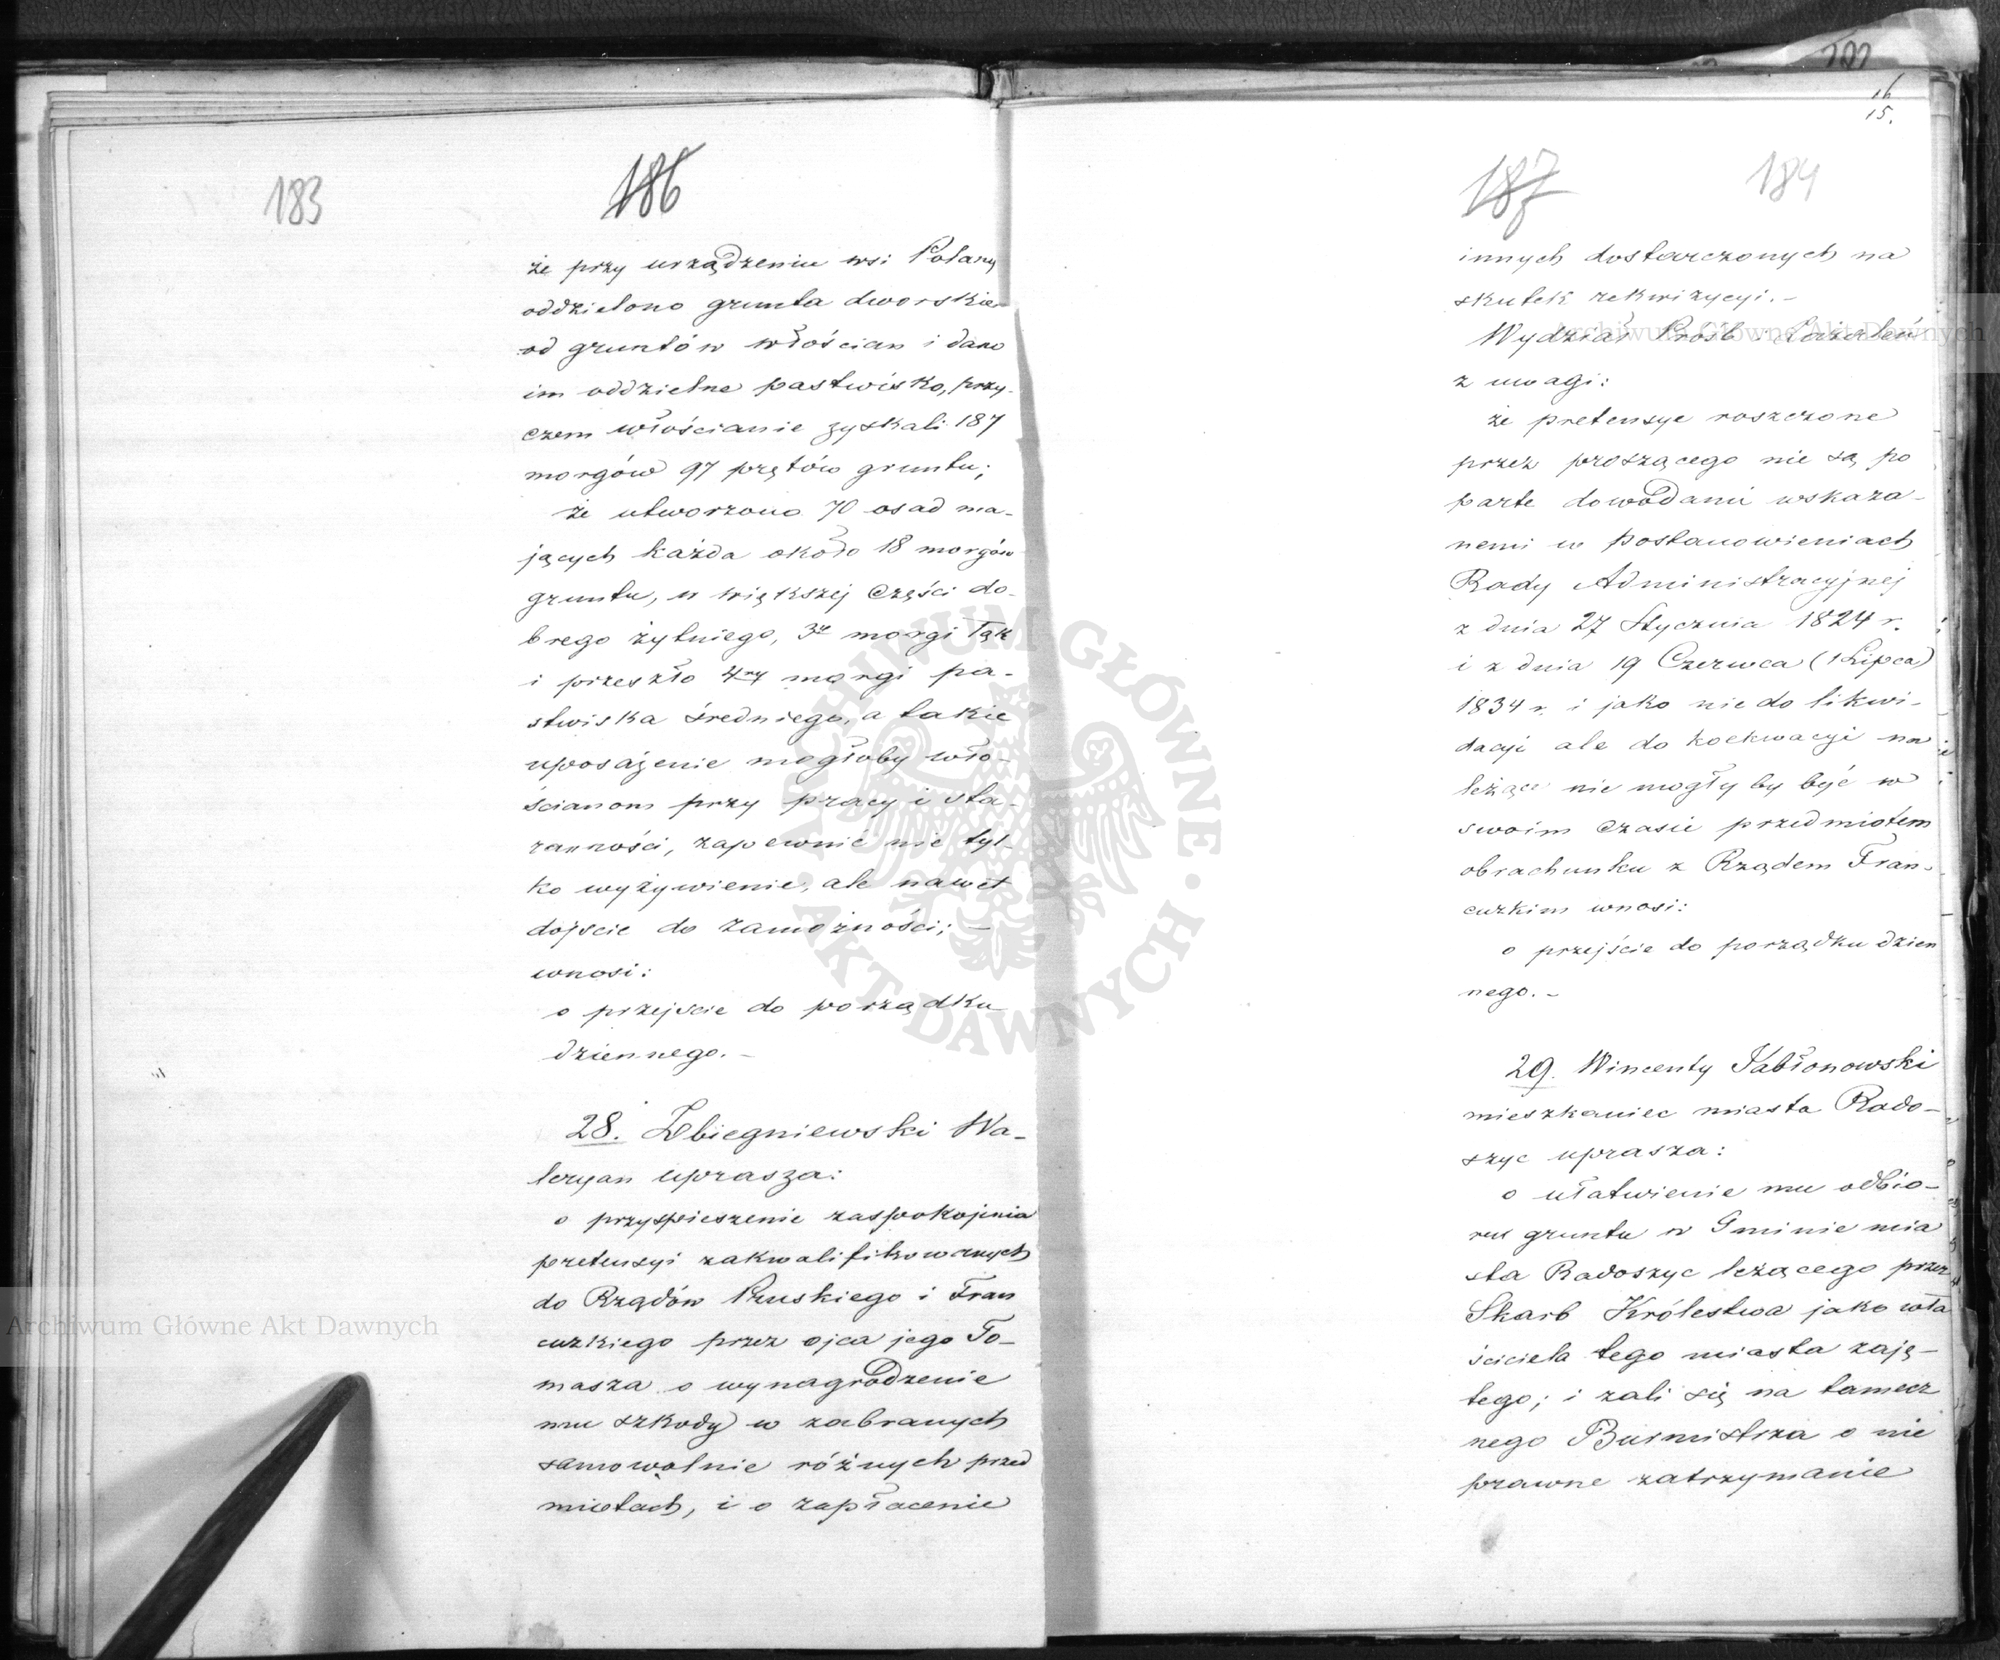 183
186
że przy urządzeniu wsi Polany
oddzielono grunta dworskie
od gruntów włościan i dano
im oddzielne pastwisko, przy-
czem włościanie zyskali 187
morgów 97 prętów gruntu;
że utworzono 70 osad ma-
jących każda około 18 morgów
gruntu, w większej części do-
brego żytniego, 3y morgi łąk
i przeszło 4ry morgi pa-
stwiska średniego, a takie
uposażenie mogłoby wło-
ścianom przy pracy i sta-
ranności, zapewnić nie tyl-
ko wyżywienie, ale nawet
dojście do zamożności; —
wnosi:
o przejście do porządku
dziennego. —
28. Zbiegniewski Wa-
leryan uprasza:
o przyspieszenie zaspokojenia
pretensyi zakwalifikowanych
do Rządów Pruskiego i Fran
cuzkiego przez ojca jego To-
masza o wynagrodzenie
mu szkody w zabranych
samowolnie różnych przed
miotach, i o zapłacenie
16
15.
187
184
innych dostarczonych na
skutek rekwizycyi. —
Wydział Prośb i Zażaleń
z uwagi:
że pretensye roszczone
przez proszącego nie są po
parte dowodami wskaza-
nemi w postanowieniach
Rady Administracyjnej
z dnia 27 Stycznia 1824 r.
i z dnia 19 Czerwca (1 Lipca)
1834 r. i jako nie do likwi-
dacyi ale do koekwacyi na
leżące nie mogły by być w
swoim czasie przedmiotem
obrachunku z Rządem Fran-
cuzkim wnosi:
o przejście do porządku dzien
nego. —
29. Wincenty Jabłonowski
mieszkaniec miasta Rado-
szyc uprasza:
o ułatwienie mu odbio-
ru gruntu w Gminie mia
sta Radoszyc leżącego przez
Skarb Królestwa jako wła
ściciela tego miasta zaję-
tego; i żali się na tamecz
nego Burmistrza o nie
prawne zatrzymanie
Archiwum Główne Akt Dawnych
Archiwum Główne Akt Dawnych
ARCHIWUM GŁÓWNE · AKT DAWNYCH ·